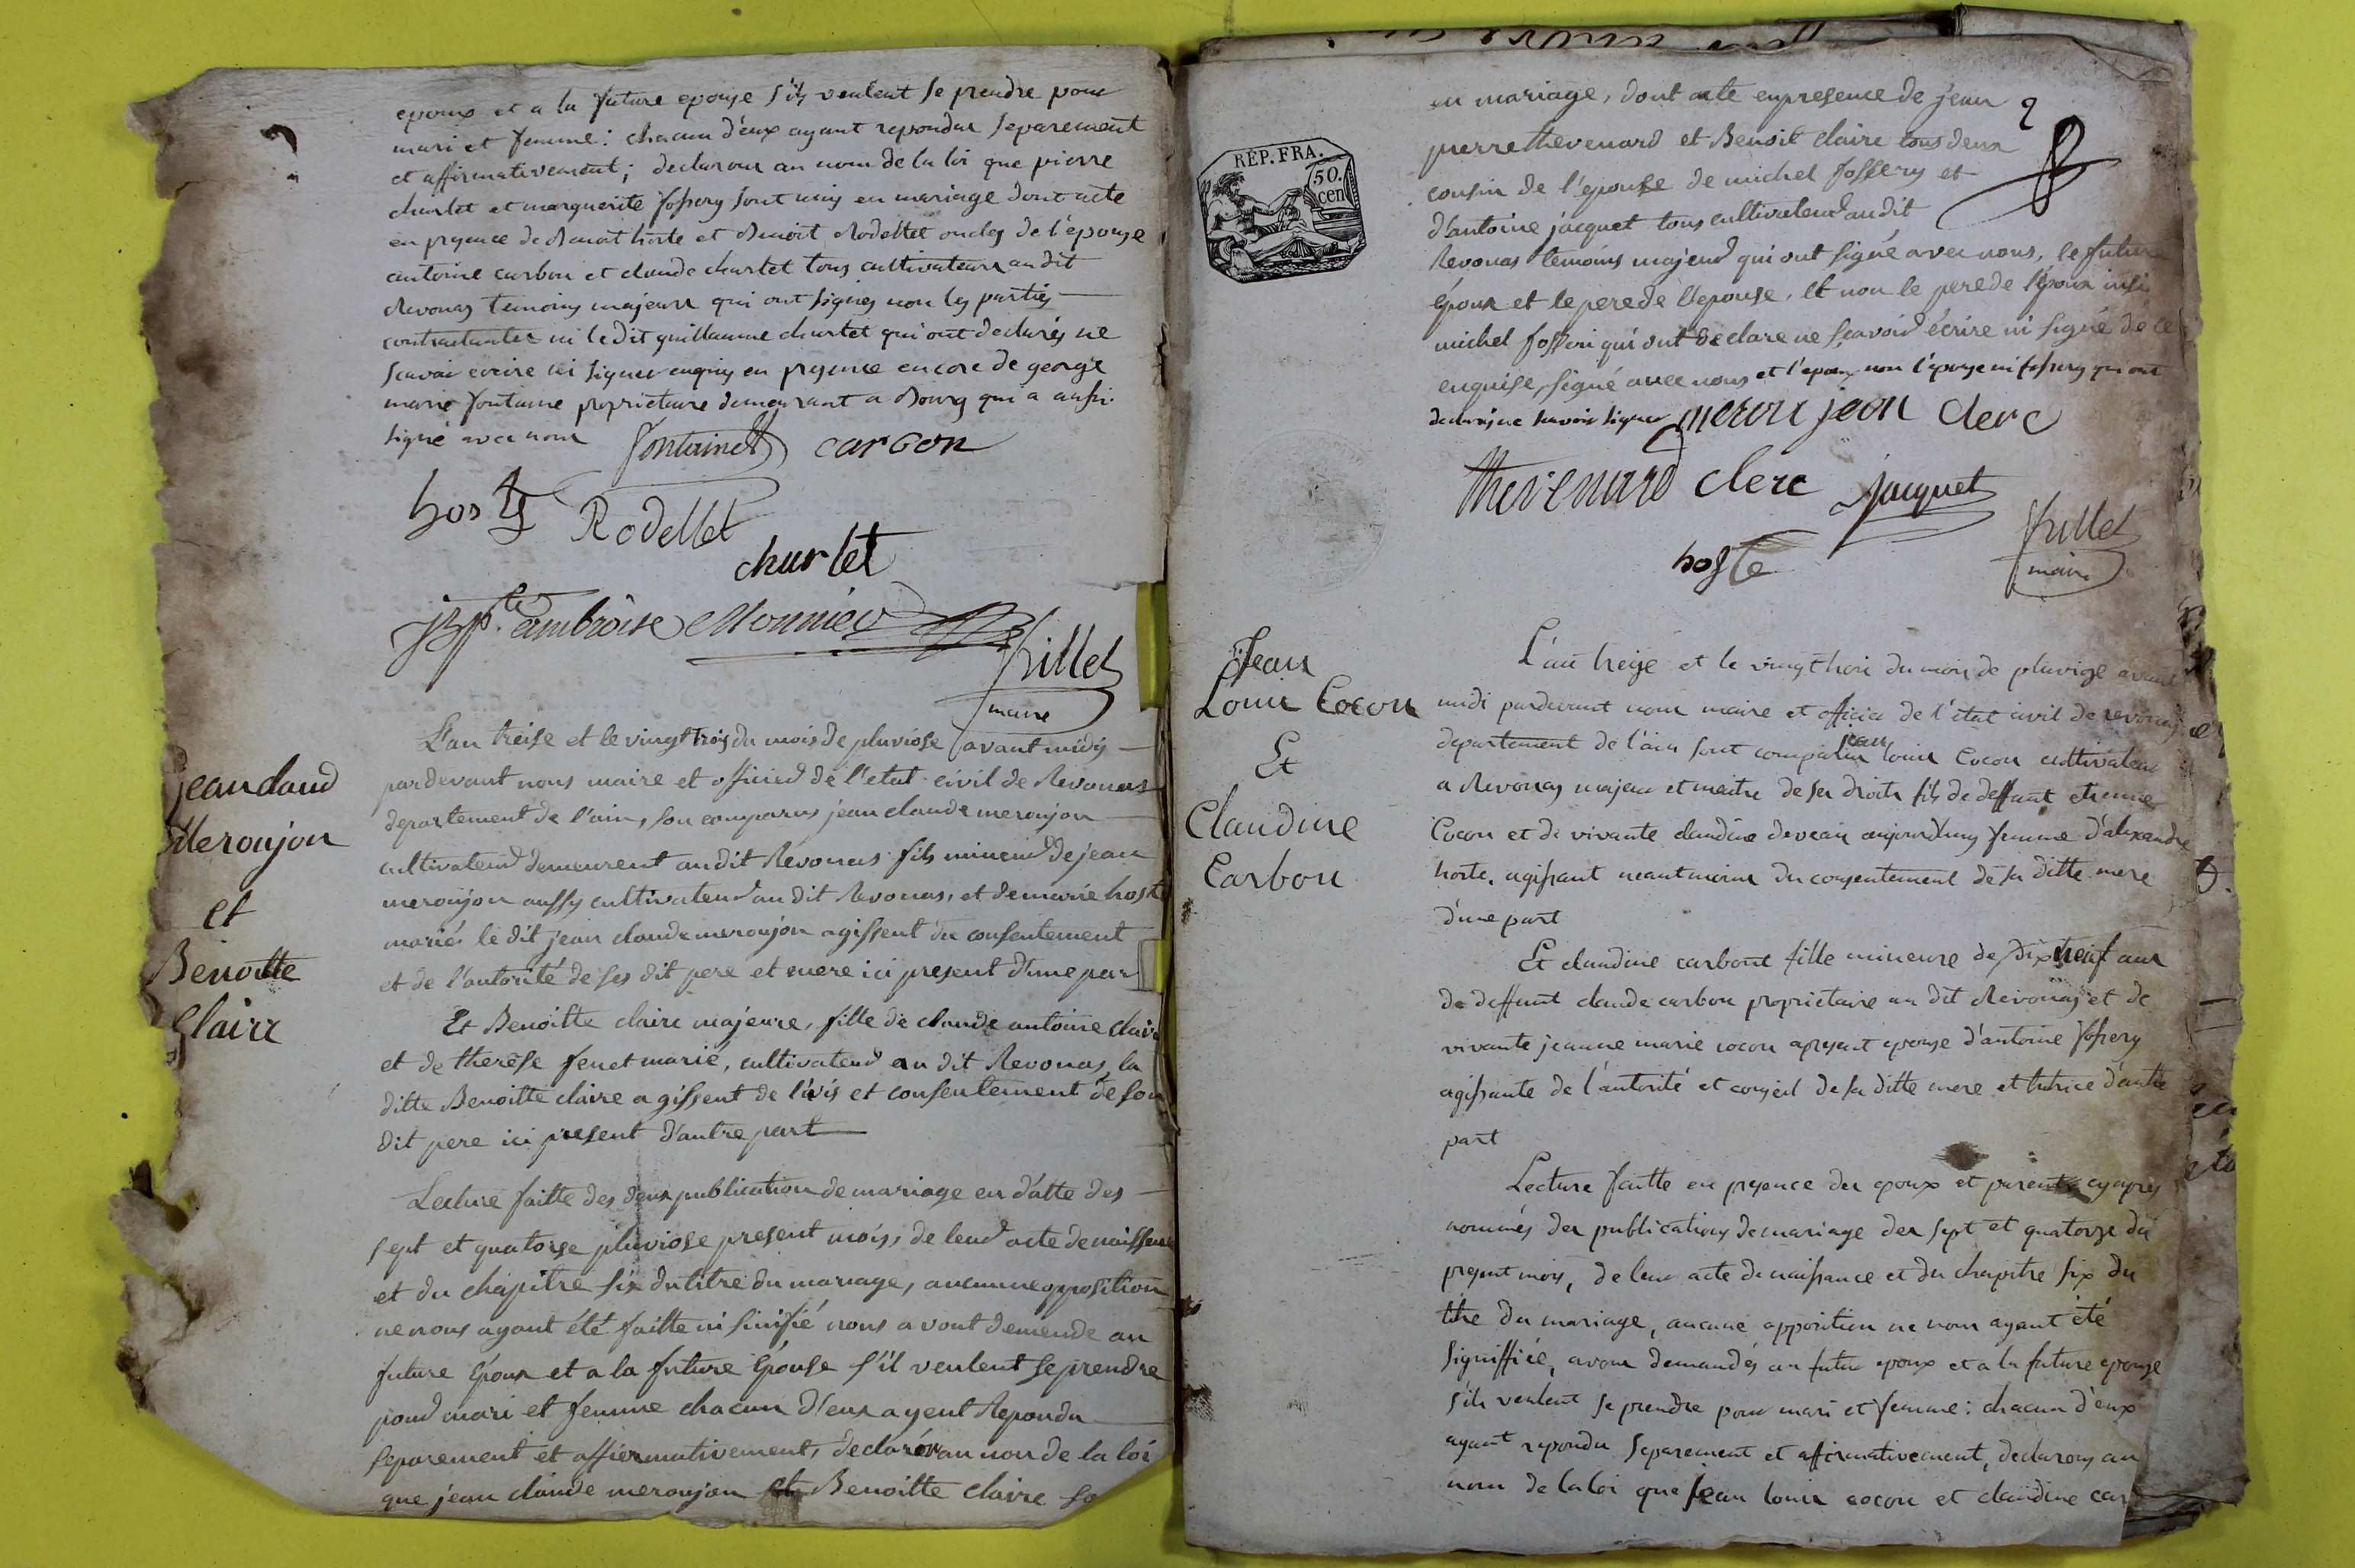 epoux et a la future epouse s'ils veulent se prendre pour
mari et femme : chacun d'eux ayant repondu separement
et affirmativement ; declarons au nom de la loi que pierre
charlet et marguerite fossery sont unis en mariage dont acte
en presence de Benoit hoste et Benoit Rodellet oncles de l'épouse
antoine carbon et claude charlet tous cultivateurs au dit
Revonas temoins majeurs qui ont signés non les parties
contractantes ni le dit guillaume charlet qui ont declarés ne
scavoir ecrire ni signer enquis en presence encore de george
marie fontaine proprietaire demeurant a Bourg qui a aussi
signé avec nous fontaine carbon
hoste Rodellet
charlet
ambroise Monnier
maire
jean claud
Meroujon
et
Benoitte
Claire
L'an treise et le vingt trois du mois de pluviose avant midy
pardevant nous maire et officier de l'etat civil de Revonas
departement de l'ain, son comparus jean claude meroujon
cultivateur demeurent au dit Revonas fils mineur de jean
meroujon aussy cultivateur au dit Revonas, et de marie hoste
mariés le dit jean claude meroujon agissent du consentement
et de l'autorité de ses dit pere et mere ici present d'une par
Et Benoitte claire majeure, fille de claude antoine clair
et de therese fenet marié, cultivateur au dit Revonas, la
ditte Benoitte claire agissent de l'avis et consentement de son
dit pere ici present d'autre part
Lecture faitte des deux publication de mariage en d'atte des
sept et quatorse pluviose present mois, de leur acte de naissence
et du chapitre six du titre du mariage, aucunne opposition
ne nous ayant été faitte ni sinifié nous avont demende au
future époux et a la future épouse s'il veulent se prendre
pour mari et femme chacun d'eux ayent Repondu
separement et affiermativement, declaron au non de la loi
que jean claude meroujon et Benoitte claire so
en mariage, dont acte en presence de jean
pierre thevenard et Benoit claire tous deux
cousin de l'epouse de michel fossery et
d'antoine jacquet tous cultivateur au dit
Revonas temoins majeur qui ont signé avec nous, le future
époux et le pere de l'epouse, et non le pere de l'époux
michel fosseri qui ont declare ne scavoir écrire ni signé de ce
enquise, signé avec nous et l'epoux non l'epouse ni fossery qui ont
declarés ne savoir signer jean clerc
thevenard clerc jacquet
hoste
maire
RÉP. FRA.
50.
cen
Jean
Louis Cocon
Et
Claudine
Carbon
L'an treize et le vingt trois du mois de pluvioze avant
midi pardevant nous maire et officier de l'état civil de revonas
departement de l'ain sont comparu jean louis Cocon cultivateur
a Revonas majeur et maitre de ses droits fils de deffunt etienne
Cocon et de vivante claudine aujourd'huy femme d'alexandre
hoste, agissant neantmoins du consentement de sa ditte mere
d'une part
Et claudine carbont fille mineure de dix neuf ans
de deffunt claude carbon proprietaire au dit Revonas et de
vivante jeanne marie cocon apresent epouse d'antoine fossery
agissante de l'autorité et conseil de sa ditte mere et tutrice d'autre
part
Lecture faitte en presence des epoux et parents cy apres
nommés des publications de mariage des sept et quatorze du
present mois, de leur acte de naissance et du chapitre six du
titre du mariage, aucune opposition ne nous ayant été
signiffiée, avons demandés au futur epoux et a la future epouse
s'ils veulent se prendre pour mari et femme : chacun d'eux
ayant repondu separement et affirmativement, declarons au
nom de la loi que jean louis cocon et claudine car